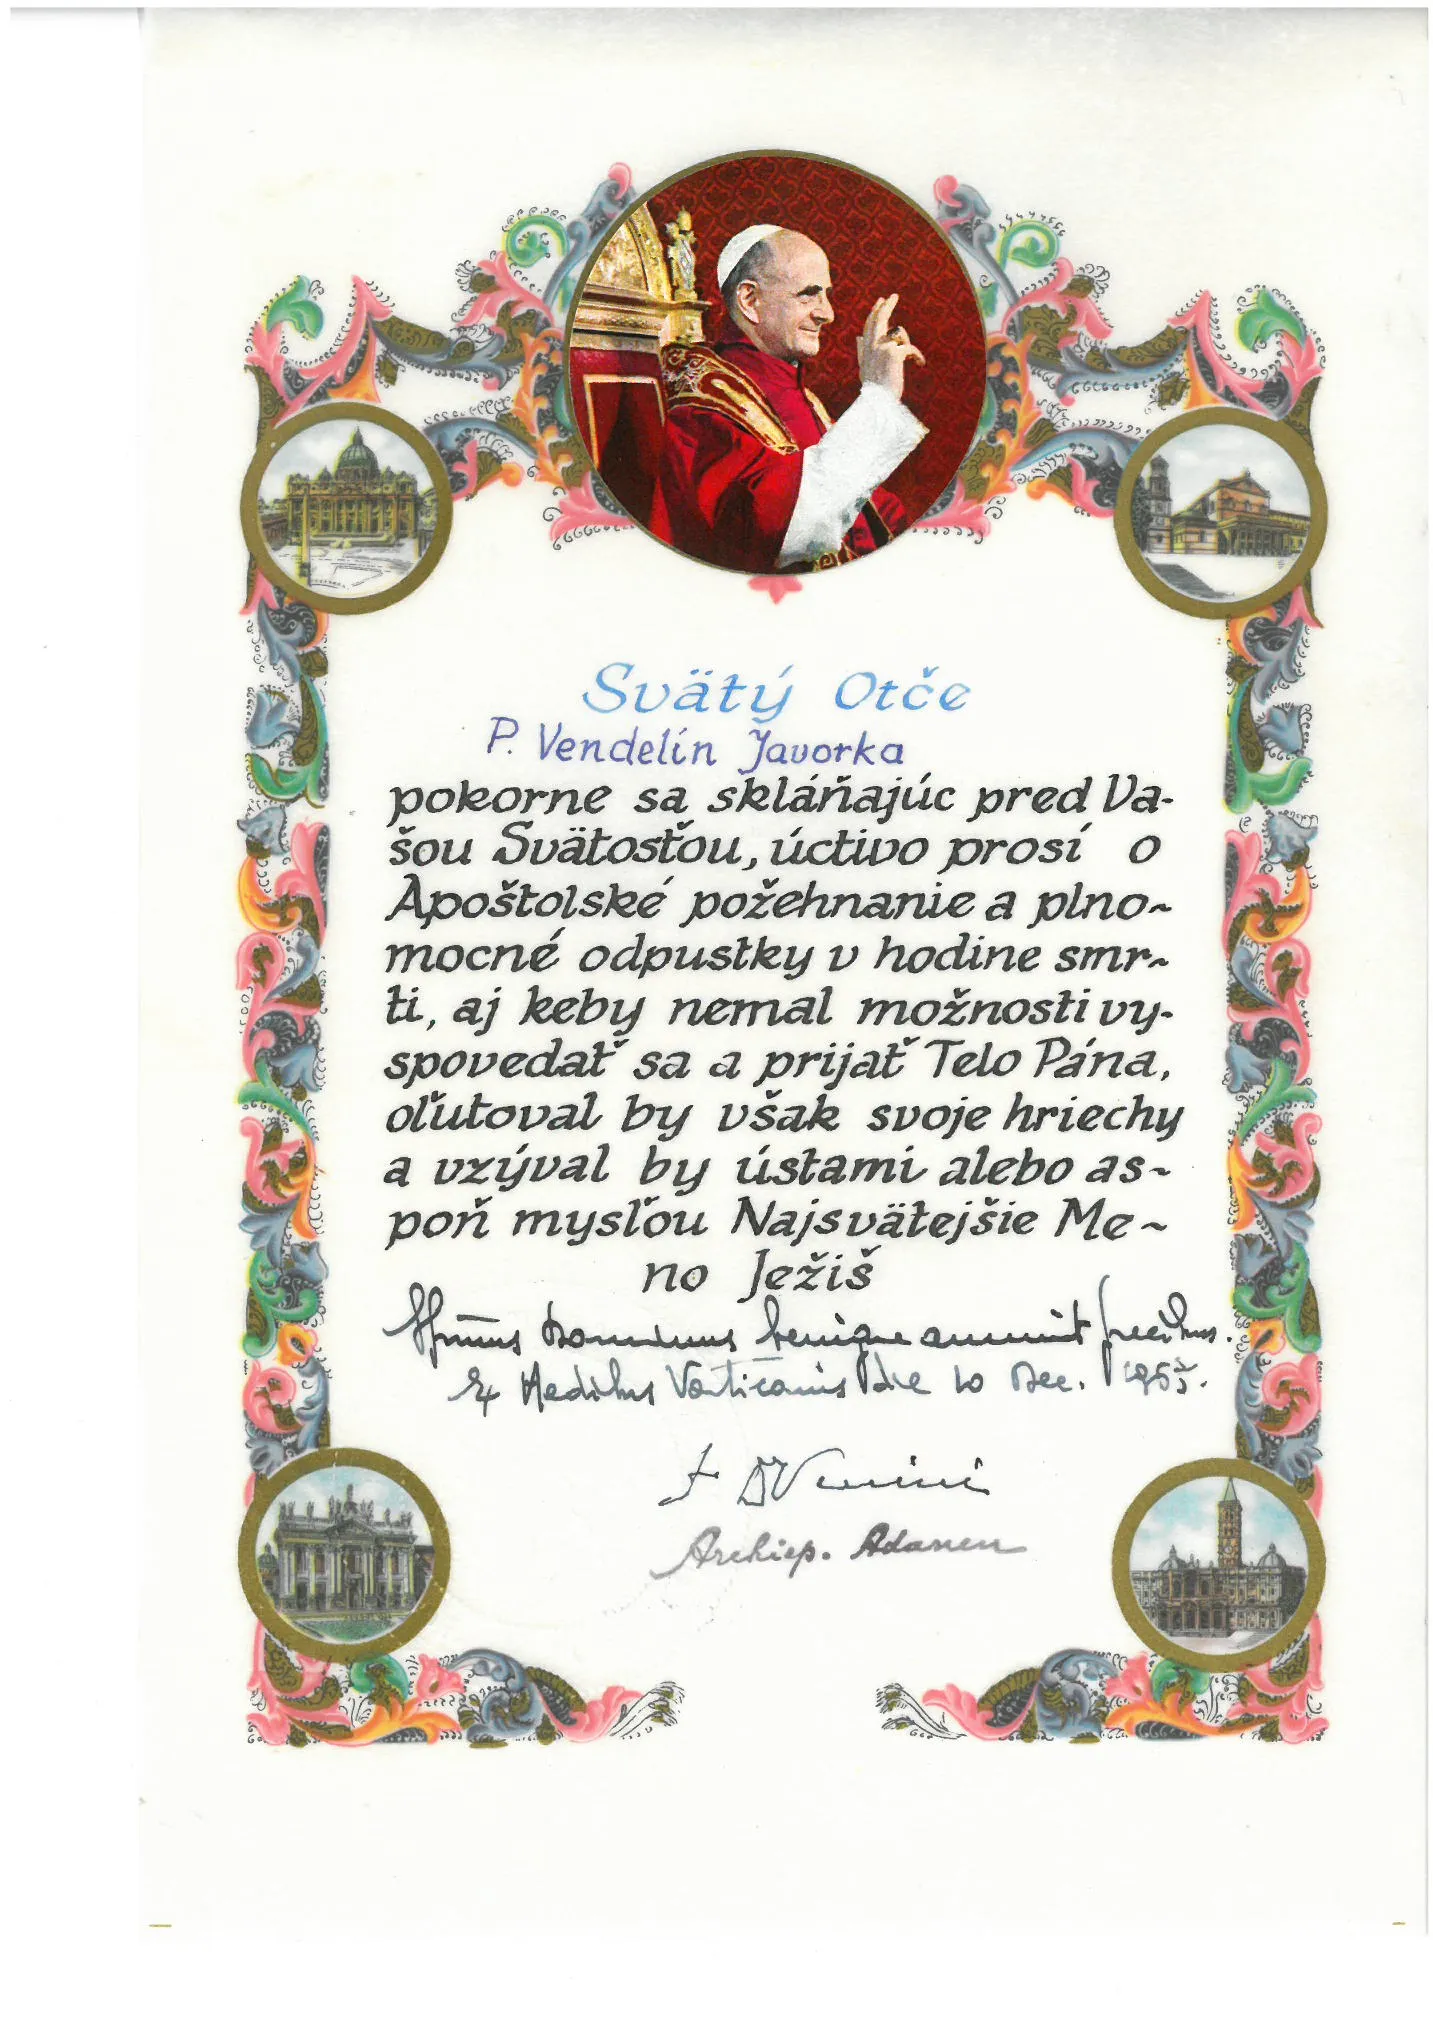 Svätý Otče
P. Vendelín Javorka
pokorne sa skláňajúc pred Va-
šou Svätosťou, úctivo prosí o
Apoštolské požehnanie a plno-
mocné odpustky v hodine smr-
ti, aj keby nemal možnosti vy-
spovedať sa a prijať Telo Pána,
oľutoval by však svoje hriechy
a vzýval by ústami alebo as-
poň mysľou Najsvätejšie Me-
no Ježiš
Dominus benigne annuit precibus.
Ex Aedibus Vaticanis die 10 Dec.
Archiep. Adanen